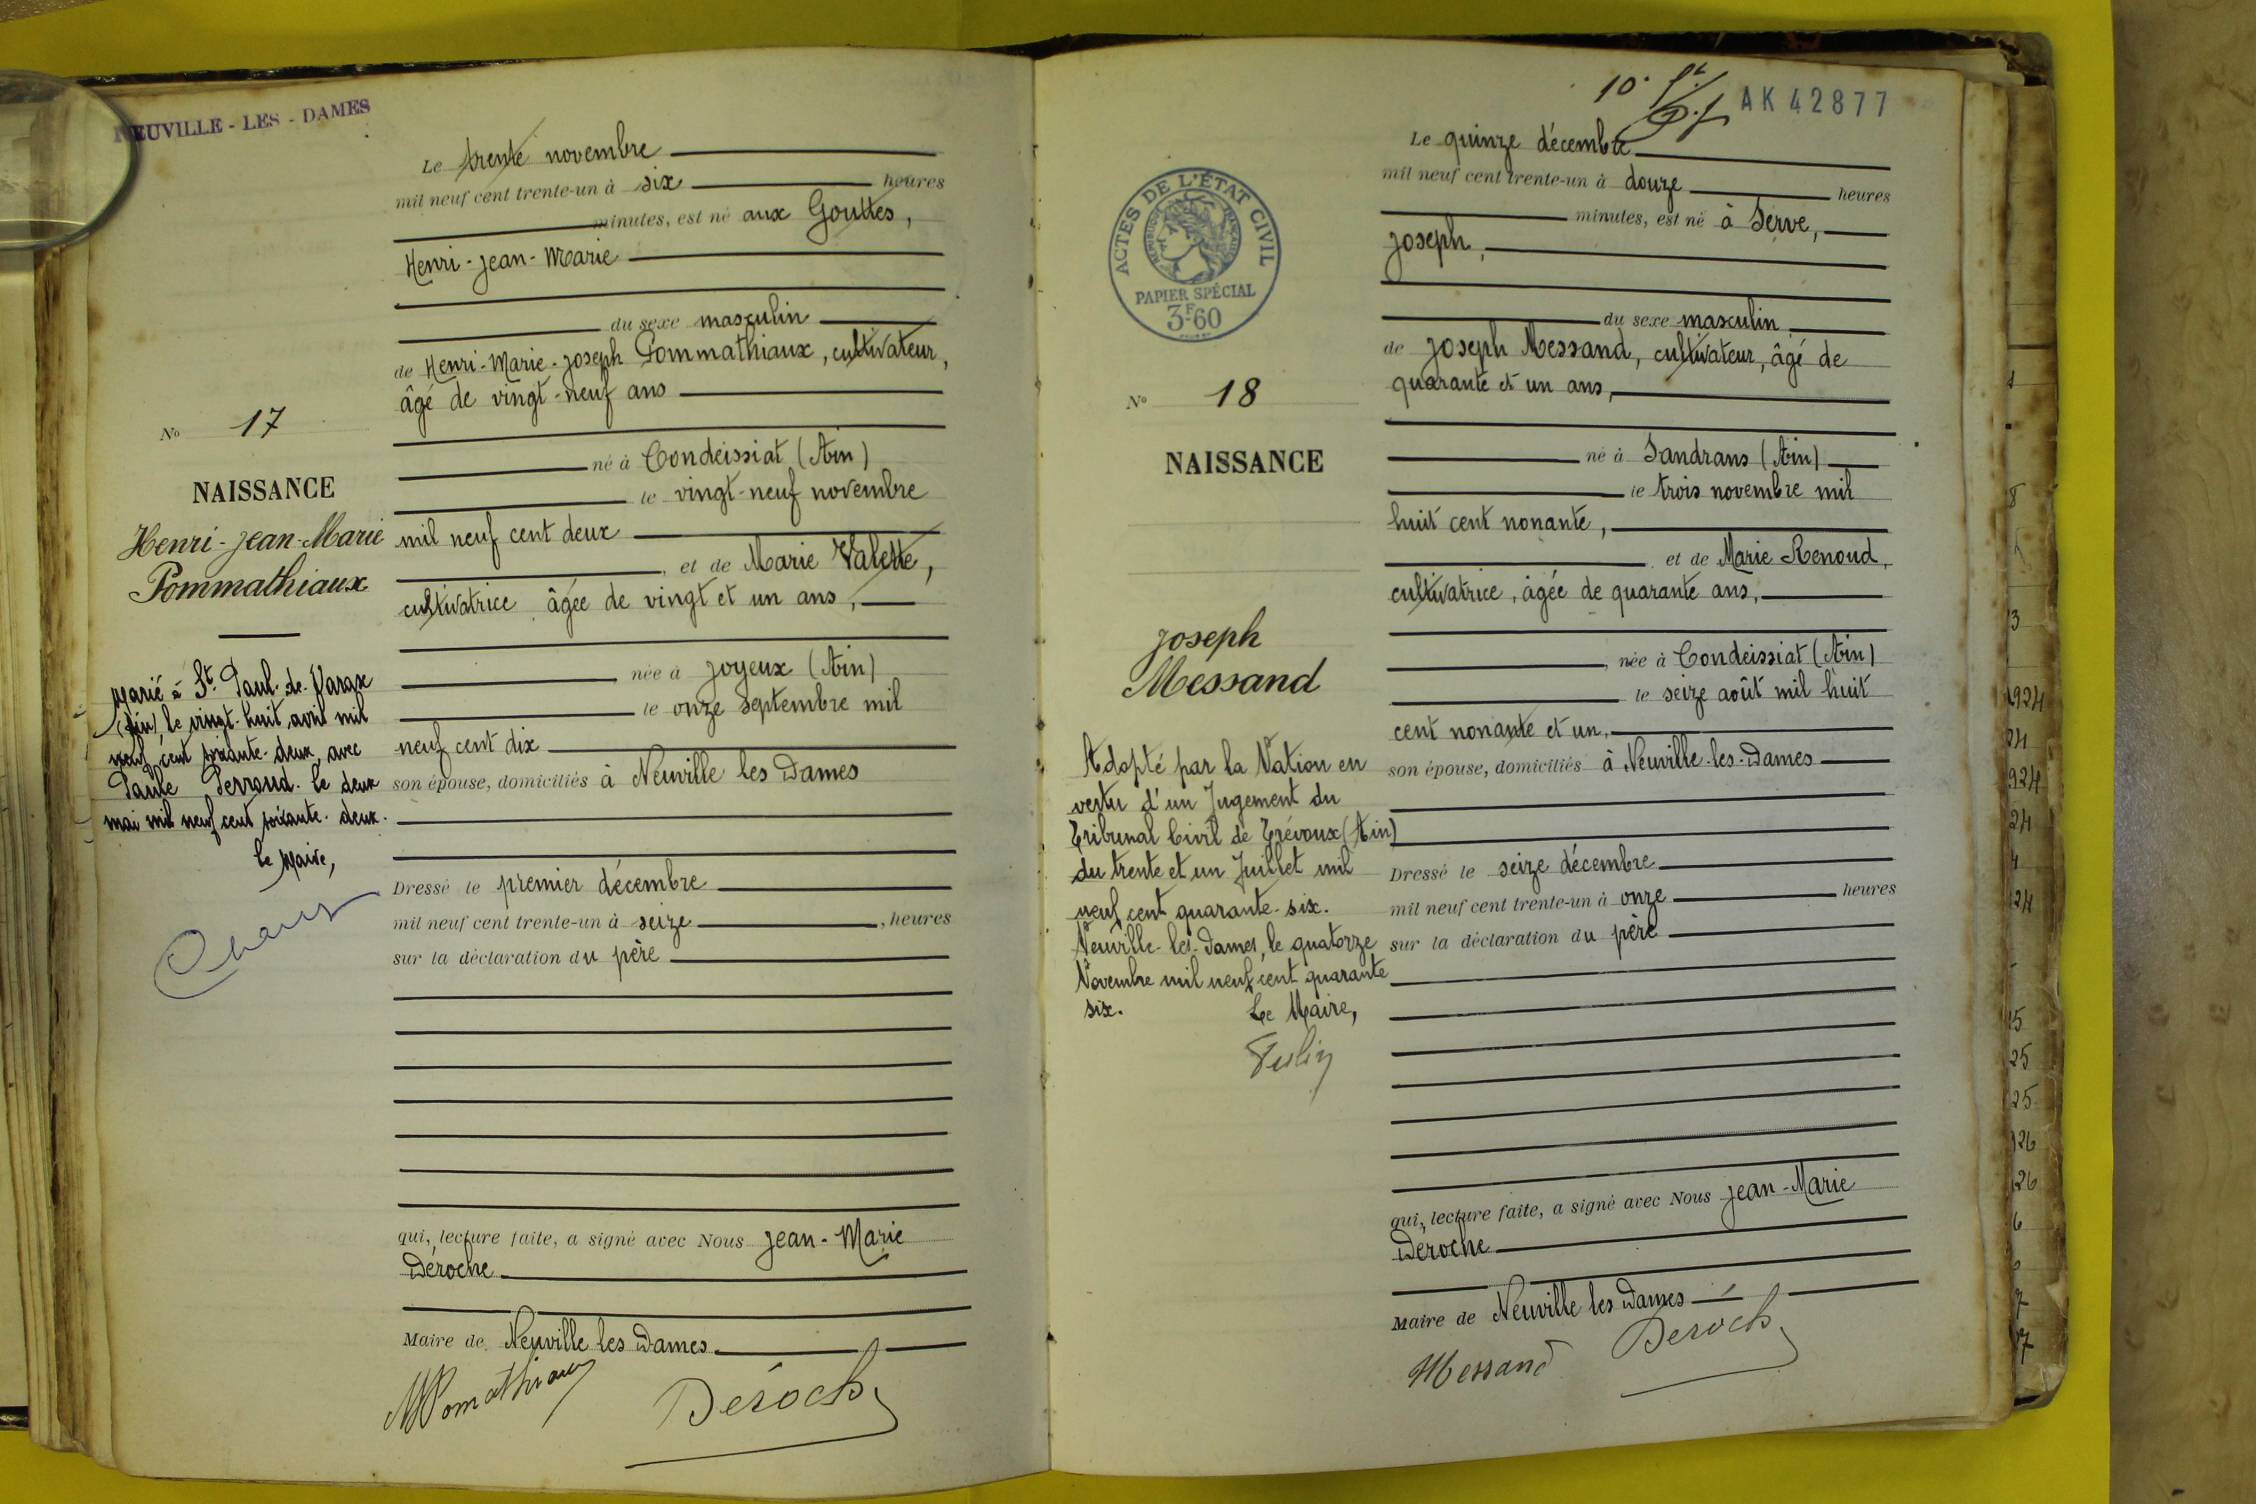 NEUVILLE - LES - DAMES
Le trente novembre
mil neuf cent trente-un à six heures
minutes, est né aux Gouttes,
Henri-Jean-Marie
du sexe masculin
de Henri-Marie-Joseph Pommathiaux, cultivateur,
âgé de vingt-neuf ans
né à Condeissiat (Ain)
le vingt-neuf novembre
mil neuf cent deux
, et de Marie Valette,
cultivatrice, âgée de vingt et un ans,
née à Joyeux (Ain)
le onze septembre mil
neuf cent dix
son épouse, domiciliés à Neuville les Dames
Dressé le premier décembre
mil neuf cent trente-un à seize , heures
sur la déclaration du père
qui, lecture faite, a signé avec Nous Jean-Marie
Déroche
Maire de Neuville les Dames
Déroche
No 17
NAISSANCE
Henri-Jean-Marie
Pommathiaux
Marié à St. Paul-de-Varax
(Ain) le vingt-huit avril mil
neuf cent soixante-deux avec
Paule Perroud. le deux
mai mil neuf cent soixante-deux.
le Maire,
AK 42877
ACTES DE L'ÉTAT CIVIL
RÉPUBLIQUE FRANÇAISE
PAPIER SPÉCIAL
3F60
Le quinze décembre
mil neuf cent trente-un à douze heures
minutes, est né à Serve,
Joseph,
du sexe masculin
de Joseph Messand, cultivateur, âgé de
quarante et un ans,
né à Sandrans (Ain)
le trois novembre mil
huit cent nonante,
et de Marie Renoud,
cultivatrice, âgée de quarante ans,
, née à Condeissiat (Ain)
le seize août mil huit
cent nonante et un,
son épouse, domiciliés à Neuville-les-Dames
Dressé le seize décembre
mil neuf cent trente-un à onze heures
sur la déclaration du père
qui, lecture faite, a signé avec Nous Jean-Marie
Déroche
Maire de Neuville les Dames
Messand Déroche
No 18
NAISSANCE
Joseph
Messand
Adopté par la Nation en
vertu d'un Jugement du
Tribunal Civil de Trévoux (Ain)
du trente et un Juillet mil
neuf cent quarante-six.
Neuville-les-Dames, le quatorze
Novembre mil neuf cent quarante
six.
Le Maire,